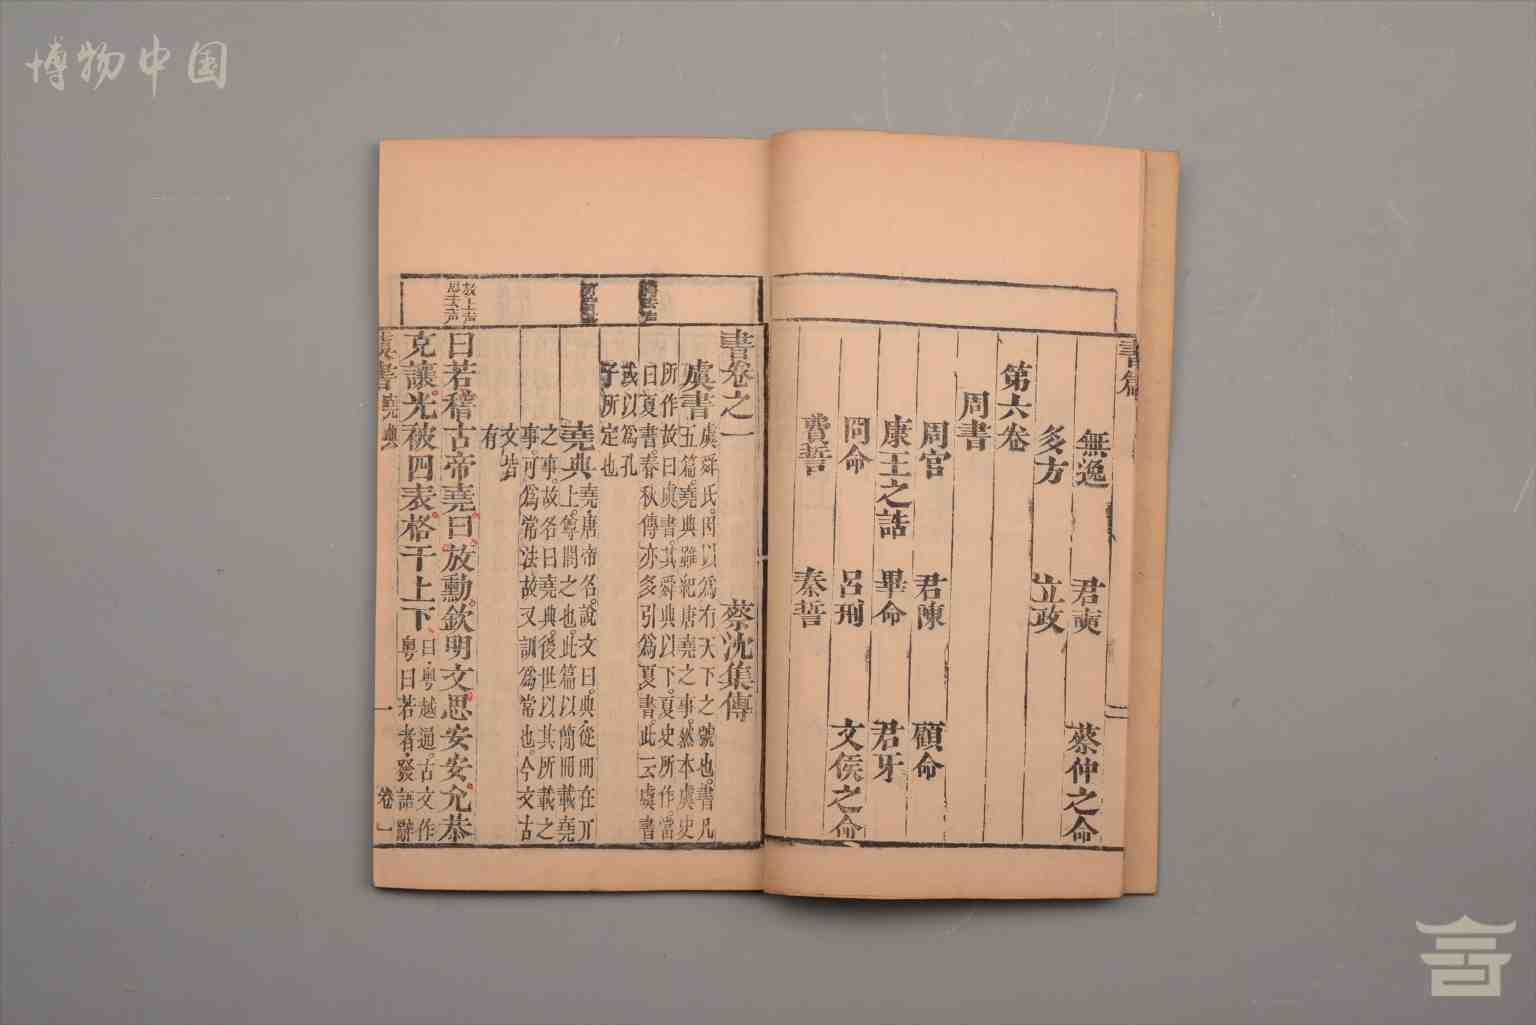 博物中国
書篇
無逸 君奭 蔡仲之命
多方 立政
第六卷
周書
周官 君陳 顧命
康王之誥 畢命 君牙
冏命 呂刑 文侯之命
費誓 秦誓
二
書卷之一 蔡沈集傳
虞書 虞舜氏因以爲有天下之號也書凡
五篇堯典雖紀唐堯之事然本虞史
所作故曰虞書其舜典以下夏史所作當
曰夏書春秋傳亦多引爲夏書此云虞書
或以爲孔
子所定也
堯典 堯唐帝名說文曰典從冊在丌
上尊閣之也此篇以簡冊載堯
之事故名曰堯典後世以其所載之
事可爲常法故又訓爲常也今文古
文皆
有
放上声
思去声
曰若稽古帝堯曰放勳欽明文思安安允恭
克讓光被四表格于上下 曰粤越通古文作
粤曰若者發語辭
虞書堯典 一 卷一